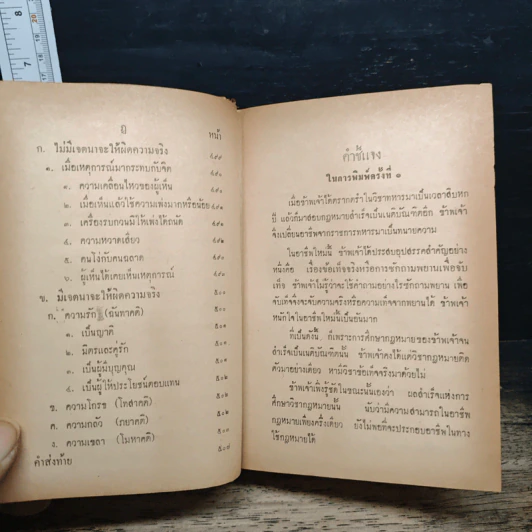 ฎ
หน้า
ก. ไม่มีเจตนาจะให้ผิดความจริง
๑. เมื่อเหตุการณ์มากระทบกับจิต
๑. ความเคลื่อนไหวของผู้เห็น
๒. เมื่อเห็นแล้วใช้ความเพ่งมากหรือน้อย
๓. เครื่องรบกวนมิให้เพ่งได้ถนัด
๔. ความหวาดเสียว
๕. คนโง่กับคนฉลาด
๖. ผู้เห็นได้เคยเห็นเหตุการณ์
ข. มีเจตนาจะให้ผิดความจริง
ก. ความรัก (ฉันทาคติ)
๑. เป็นญาติ
๒. มิตรและคู่รัก
๓. เป็นผู้มีบุญคุณ
๔. เป็นผู้ให้ประโยชน์ตอบแทน
ข. ความโกรธ (โทสาคติ)
ค. ความกลัว (ภยาคติ)
ง. ความเขลา (โมหาคติ)
คำส่งท้าย
คำชี้แจง
ในการพิมพ์ครั้งที่ ๑
เมื่อข้าพเจ้าได้ตรากตรำในวิชาทหารมาเป็นเวลาสิบหก
ปี แล้วก็มาสอบกฎหมายสำเร็จเป็นเนติบัณฑิตอีก ข้าพเจ้า
จึงเปลี่ยนอาชีพจากราชการทหารมาเป็นทนายความ
ในอาชีพใหม่นี้ ข้าพเจ้าได้ประสบอุปสรรคสำคัญอย่าง
หนึ่งคือ เรื่องข้อเท็จจริงหรือการซักถามพยานเพื่อจับ
เท็จ ข้าพเจ้าไม่รู้ว่าจะใช้คำถามอย่างไรซักถามพยาน เพื่อ
จับเท็จซึ่งจะจับความจริงหรือความเท็จจากพยานได้ ข้าพเจ้า
หนักใจในอาชีพใหม่นี้เป็นอันมาก
ที่เป็นดังนี้ ก็เพราะการศึกษากฎหมายของข้าพเจ้าจน
สำเร็จเป็นเนติบัณฑิตนั้น ข้าพเจ้าคงได้แต่วิชากฎหมายติด
ตัวมาอย่างเดียว หามีวิชาข้อเท็จจริงมาด้วยไม่
ข้าพเจ้าเพิ่งรู้ชัดในขณะนั้นเองว่า ผลสำเร็จแห่งการ
ศึกษาวิชากฎหมายนั้น นับว่ามีความสามารถในอาชีพ
กฎหมายเพียงครึ่งเดียว ยังไม่พอที่จะประกอบอาชีพในทาง
ใช้กฎหมายได้